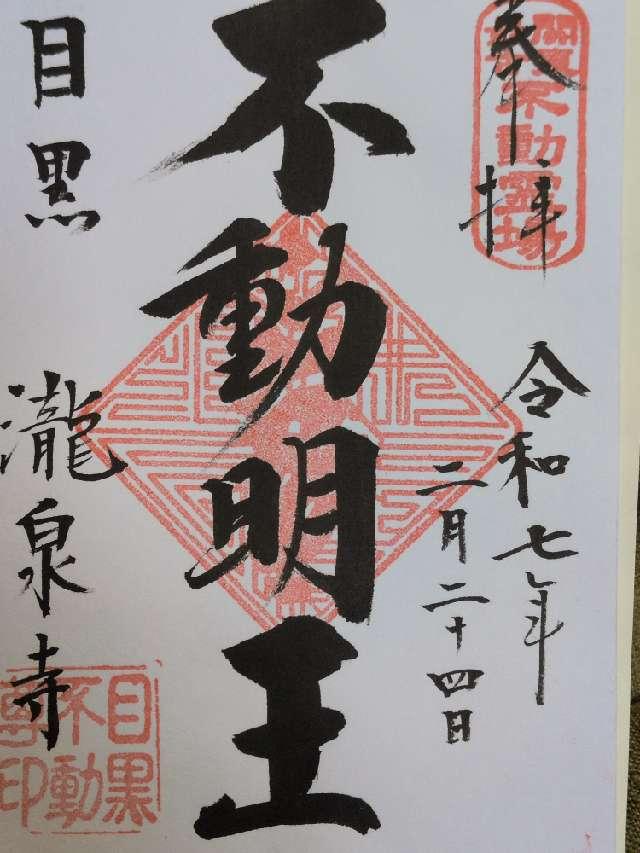 奉拝
關東不動霊場
令和七年
二月二十四日
不動明王
目黒 瀧泉寺
目黒
不動
尊印